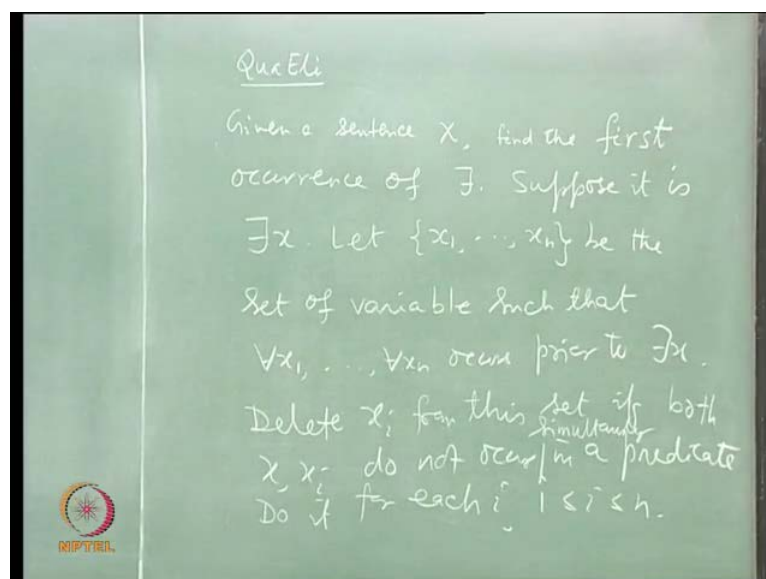 QuaEli
Given a sentence X, find the first
ocurrence of ∃. Suppose it is
∃x. Let {x₁, ..., xₙ} be the
set of variable such that
∀x₁, ..., ∀xₙ occurs prior to ∃x.
Delete xᵢ from this set if both
simultaneously
x, xᵢ do not occur in a predicate
Do it for each i, 1 ≤ i ≤ n.
NPTEL